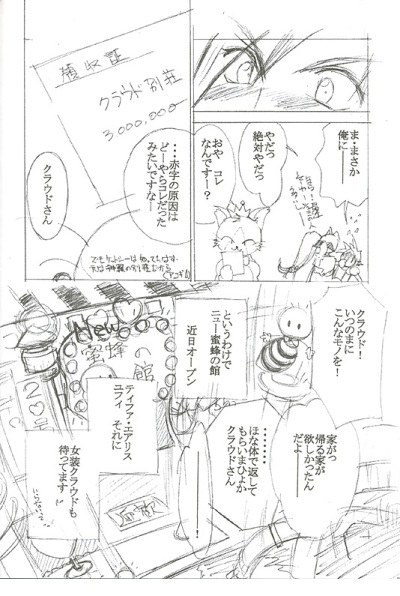 ま・まさか
俺に――
やだっ
絶対やだっ
おや コレ
なんですー？
領収証
クラウド 別荘
3,000,000
・・・赤字の原因は
どーやらコレだった
みたいですな―
クラウドさん
クラウド！
いつのまに
こんなモノを！
家がっ
帰る家が
欲しかったん
だよ――
ほな体で返して
もらいまひょか
クラウドさん
――――！
というわけで
ニュー蜜蜂の館
近日オープン
New
蜜蜂の館
ティファ・エアリス
ユフィ それに
女装クラウドも
待ってます